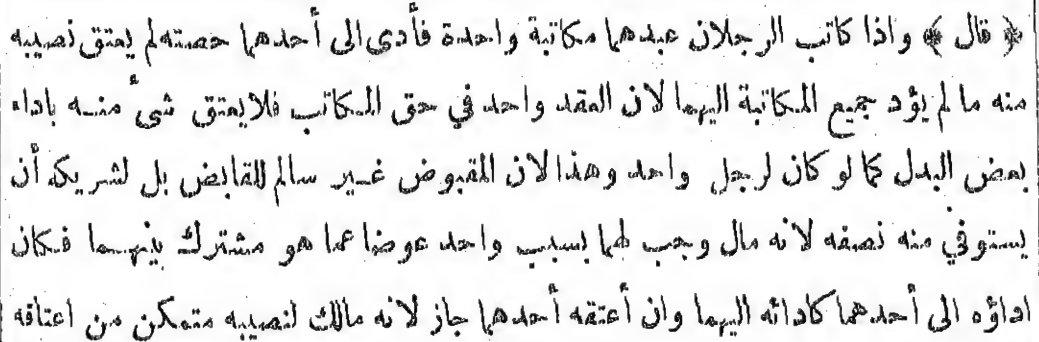 ﴿ قال ﴾ واذا كاتب الرجلان عبدهما مكاتبة واحدة فأدى الى أحدهما حصته لم يعتق نصيبه
منه ما لم يؤد جميع المكاتبة اليهما لان العقد واحد في حق المكاتب فلا يعتق شئ منه باداء
بعض البدل كما لو كان لرجل واحد وهذا لان المقبوض غير سالم للقابض بل لشريكه أن
يستوفي منه نصفه لانه مال وجب لهما بسبب واحد عوضا عما هو مشترك بينهما فكان
اداؤه الى أحدهما كادائه اليهما وان أعتقه أحدهما جاز لانه مالك لنصيبه متمكن من اعتاقه